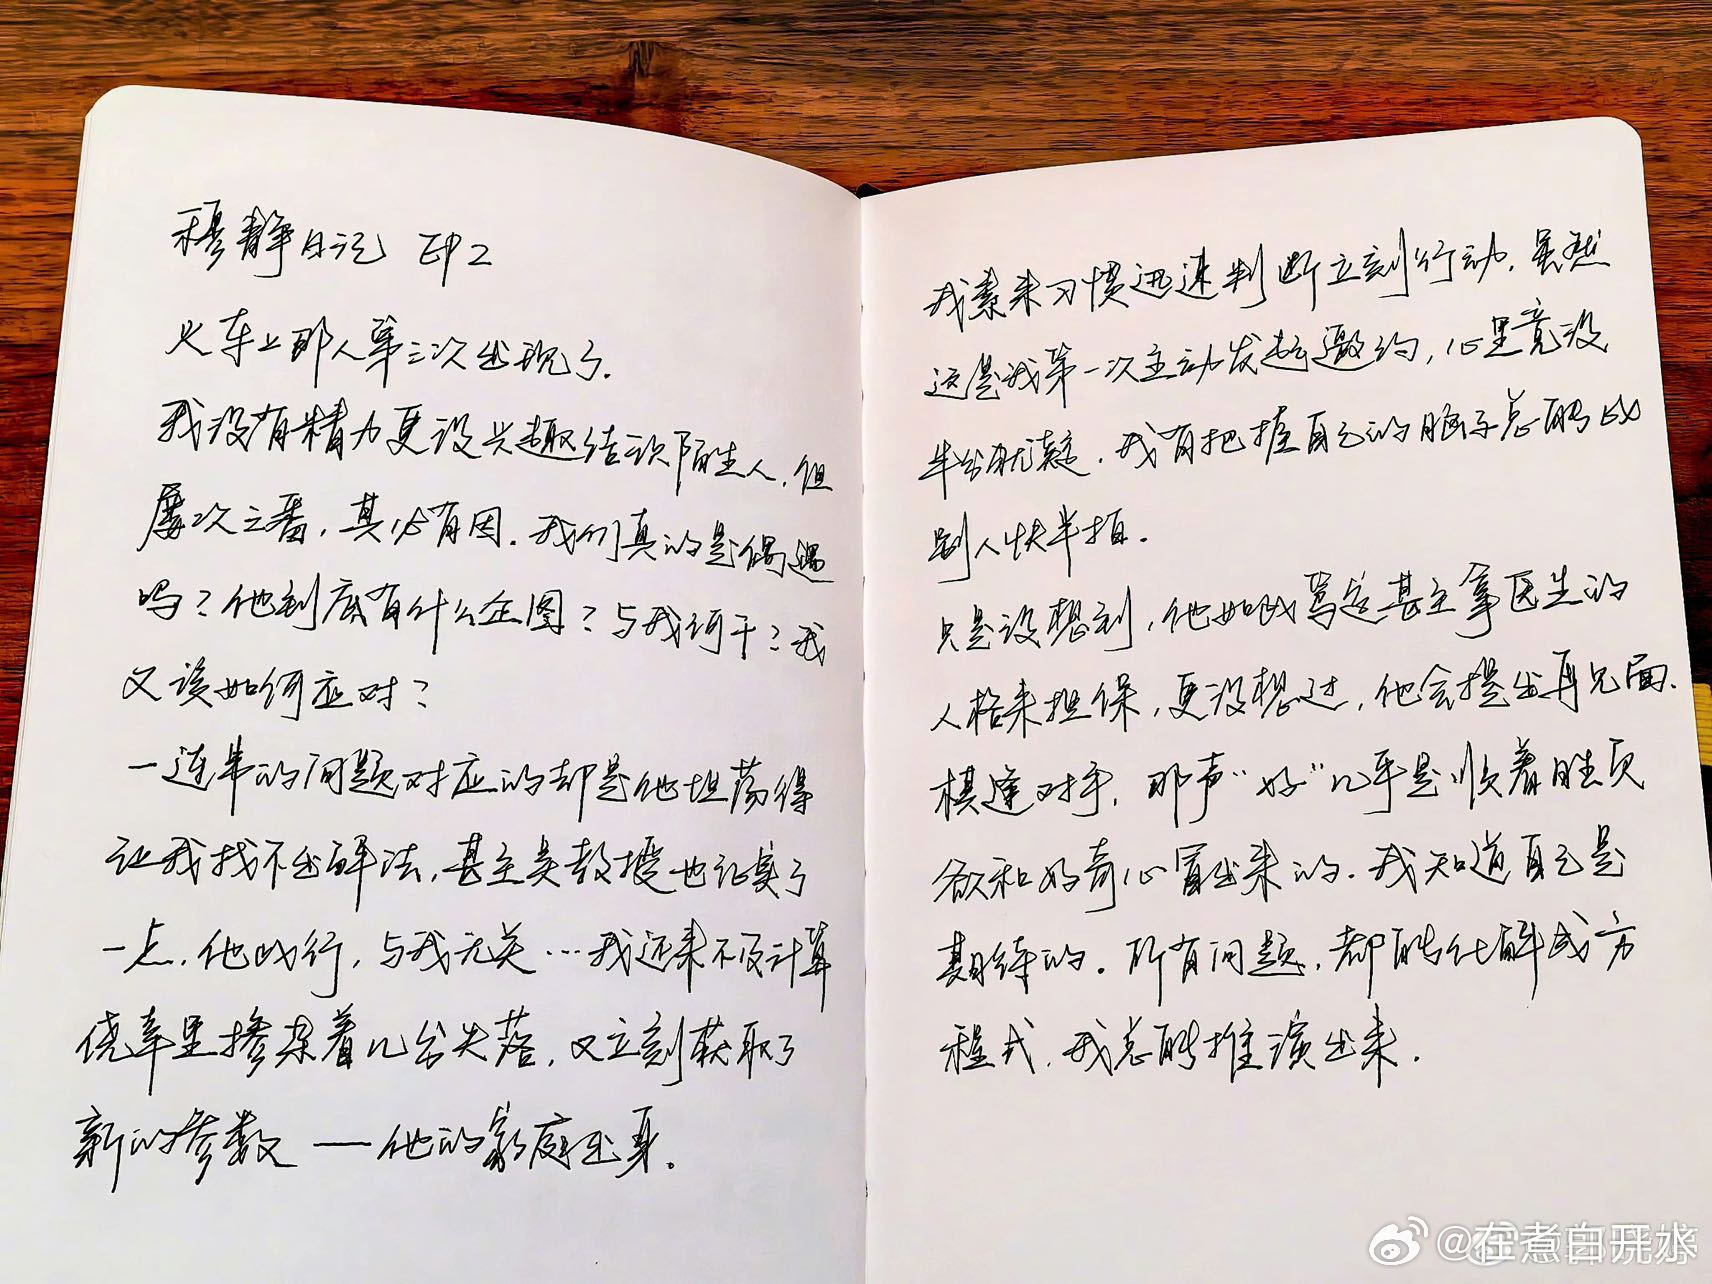 穆静日记 EP2
火车上那人第三次出现了.
我没有精力更没兴趣结识陌生人,但
屡次三番,其必有因.我们真的是偶遇
吗?他到底有什么企图?与我何干?我
又该如何应对?
一连串的问题对应的却是他坦荡得
让我找不出解法,甚至吴教授也证实了
一点,他此行,与我无关…我还来不及计算
侥幸里掺杂着几分失落,又立刻获取了
新的参数 —— 他的家庭出身.
我素来习惯迅速判断立刻行动.虽然
这是我第一次主动发起邀约,心里竟没
半分犹疑.我有把握自己的脑子总能比
别人快半拍.
只是没想到,他如此笃定甚至拿医生的
人格来担保,更没想过,他会提出再见面.
棋逢对手,那声“好”几乎是顺着胜负
欲和好奇心冒出来的.我知道自己是
期待的.所有问题,都能化解成方
程式,我总能推演出来.
@在煮白开水